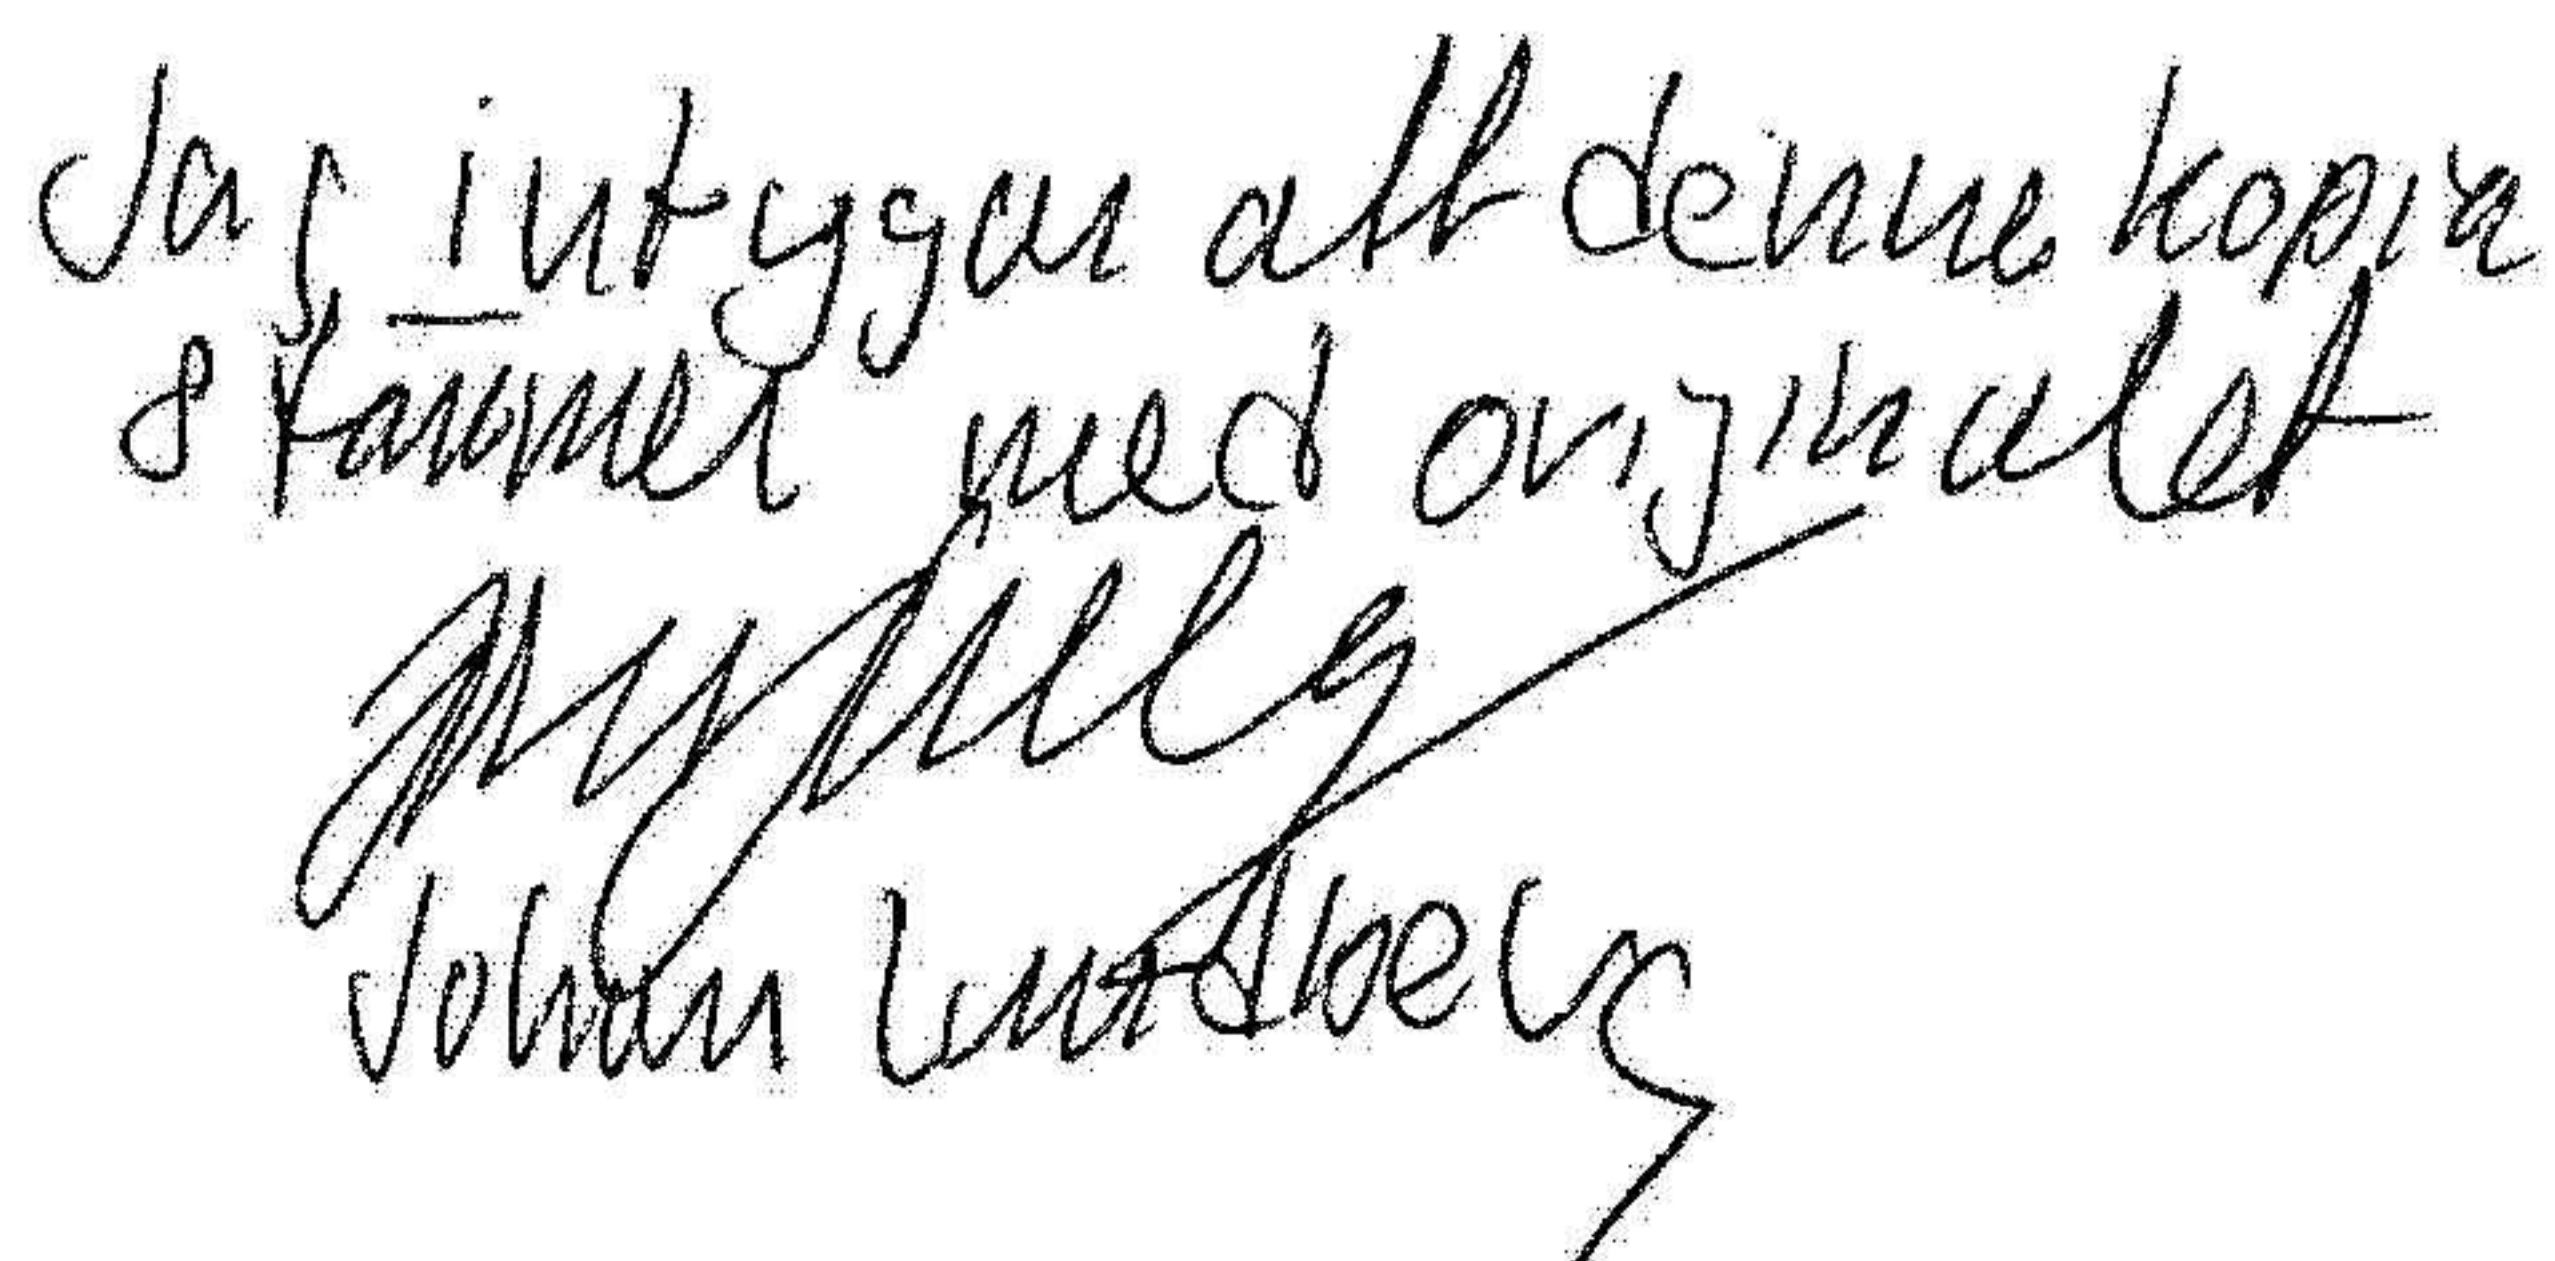 Jag intygar att denna kopia
stämmer med originalet
Johan Lundberg